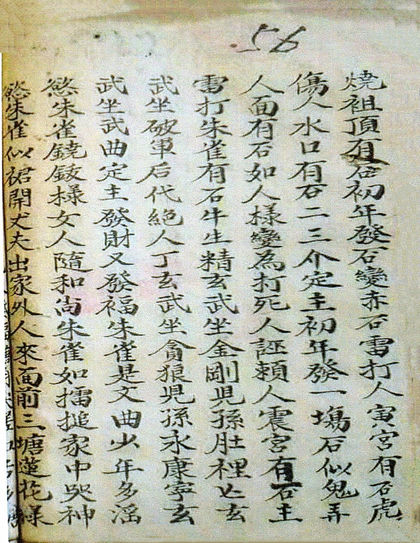 56
燒祖頂有石初年發石變赤石雷打人寅宮有石虎
傷人水口有石二三介定主初年發一塲石似鬼弄
人面有石如人樣變為打死人誣賴人震宮有石主
雷打朱雀有石牛生精玄武坐金剛兒孫肚裡亡玄
武坐破軍后代絕人丁玄武坐貪狼兒孫永康寧玄
武坐武曲定主發財又發福朱雀是文曲少年多淫
慾朱雀鐃鈸樣女人隨和尚朱雀如擂搥家中哭神
慾朱雀似裙開丈夫出家外人來面前三塘蓮花樣